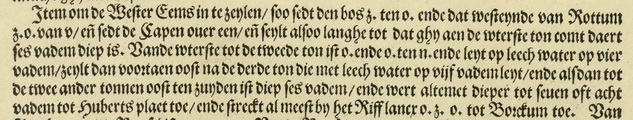 Item om de Wester Eems in te zeylen/ soo sedt den bos z. ten o. ende dat westeynde van Rottum
z.o. van v/ eñ sedt de Capen ouer een/ eñ seylt alsoo langhe tot dat ghy aen de wterste ton comt daert
ses vadem diep is. Vande wterste tot de tweede ton ist o. ende o. ten n. ende leyt op leech water op vier
vadem/ zeylt dan voortaen oost na de derde ton die met leech water op vijf vadem leyt/ ende alsdan tot
de twee ander tonnen oost ten zuyden ist diep ses vadem/ ende wert altemet dieper tot seuen oft acht
vadem tot Huberts plaet toe/ ende streckt al meest by het Riff lancx o. z. o. tot Borckum toe. Van